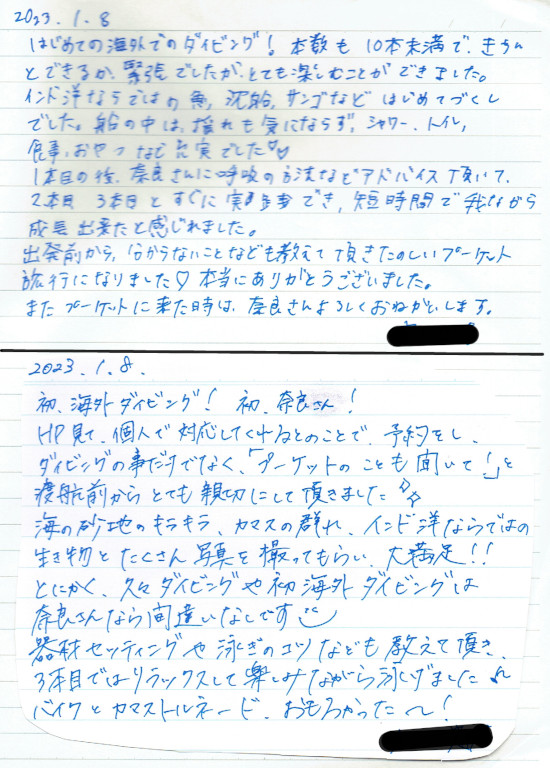 2023.1.8
はじめての海外でのダイビング! 本数も10本未満で、きちん
とできるか、緊張でしたが、とても楽しむことができました。
インド洋ならではの魚、沈船、サンゴなど はじめてづくし
でした。船の中は、揺れも気にならず、シャワー、トイレ、
食事、おやつなど充実でした♡♡
1本目の後、奈良さんに呼吸の方法などアドバイス頂いて、
2本目 3本目とすぐに実践でき、短時間で我ながら
成長出来たと感じれました。
出発前から、分からないことなども教えて頂きたのしいプーケット
旅行になりました♡ 本当にありがとうございました。
またプーケットに来た時は、奈良さんよろしくおねがいします。
2023.1.8.
初、海外ダイビング! 初、奈良さん!
HP見て、個人で対応してくれるとのことで、予約をし、
ダイビングの事だけでなく、「プーケットのことも聞いて!」と
渡航前からとても親切にして頂きました
海の砂地のキラキラ、カマスの群れ、インド洋ならではの
生き物とたくさん写真を撮ってもらい、大満足!!
とにかく、久々ダイビングや初海外ダイビングは
奈良さんなら間違いなしです
器材セッティングや泳ぎのコツなども教えて頂き、
3本目ではリラックスして楽しみながら泳げました♪
バイクとカマストルネード、おもろかった〜!